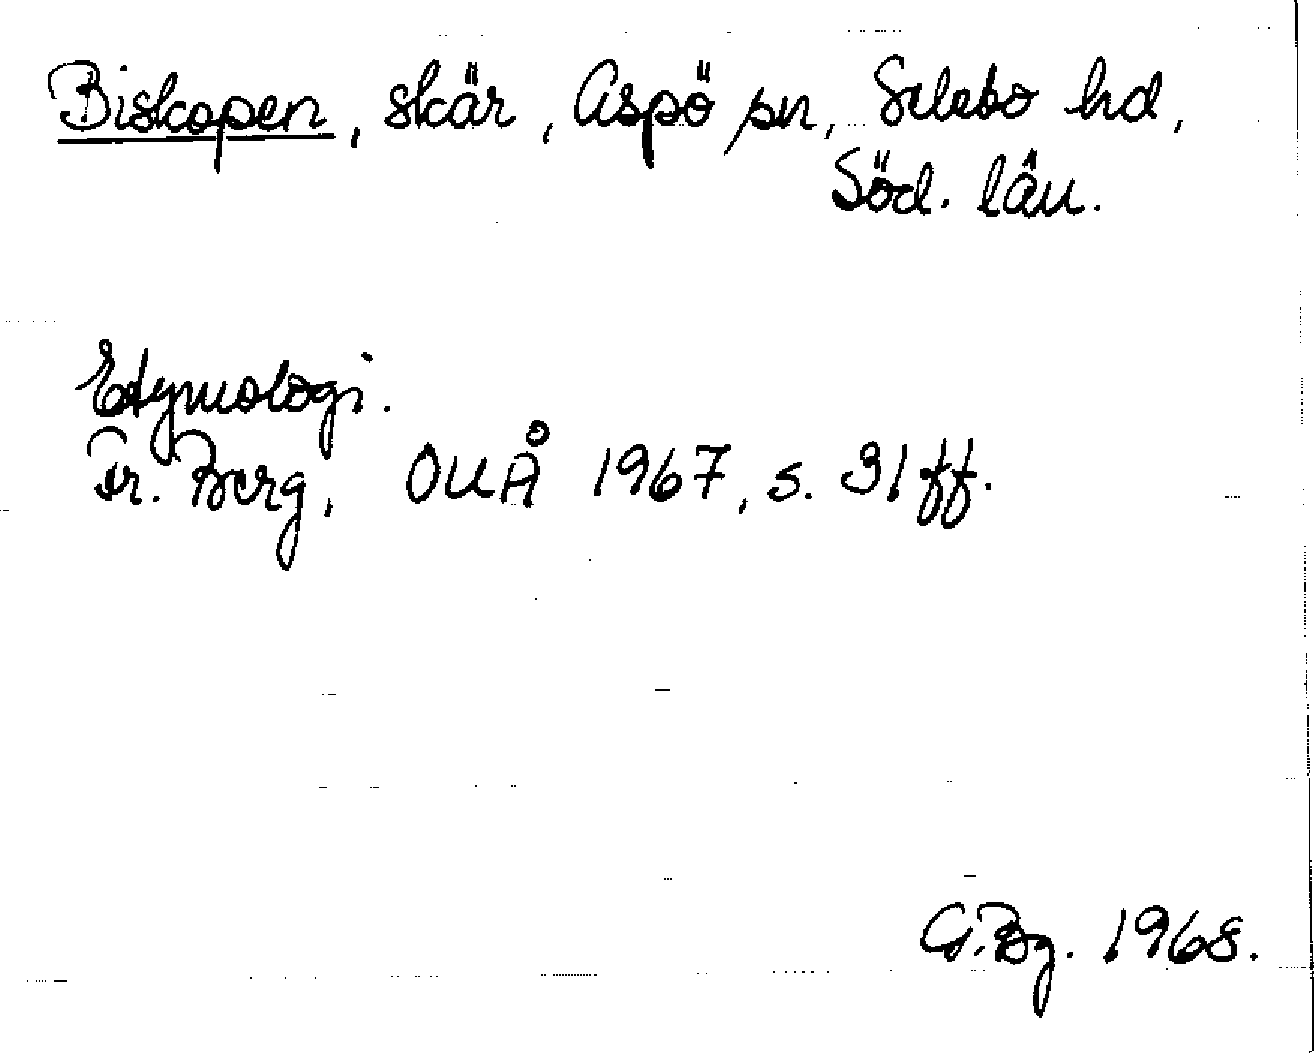 Biskopen, skär, Aspö sn, Selebo hd,
Söd. län.
Etymologi.
Fr. Berg, OUÅ 1967, s. 31 ff.
G.Bg. 1968.